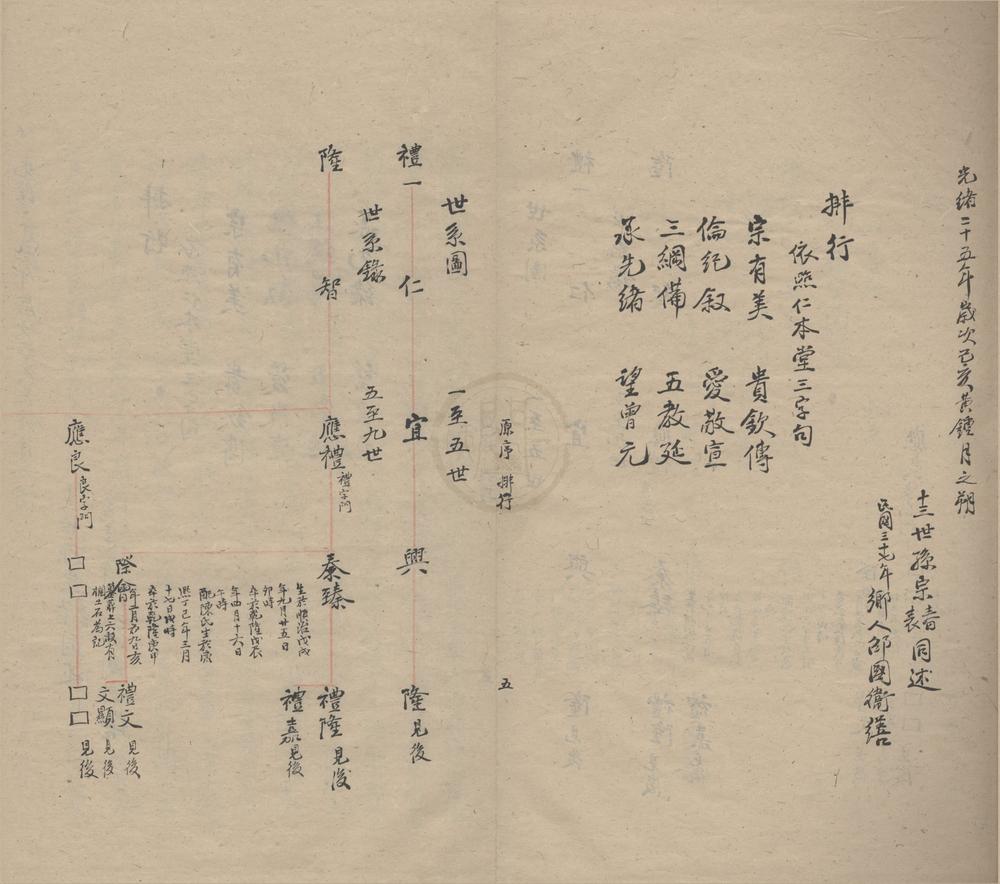 光緒二十五年歲次己亥黃鍾月之朔
十三世孫宗 同述
民國三十七年鄉人邵國衛繕
排行
依照仁本堂三字句
宗有美 貴欽傳
倫紀叙 愛敬宣
三綱備 五教延
承先緒 望曾元
原序 排行
五
世系圖 一至五世
禮一 仁 宜 興 隆見後
世系錄 五至九世
陸 智 應禮禮字門 秦臻 禮隆見後
禮嘉見後
生於順治戊戌
年九月廿五日
卯時
卒於乾隆戊辰
年四月十六日
午時
配陳氏生於康
熙丁巳年三月
十七日戌時
卒於乾隆庚申
年二月初九日亥
際會 禮文見後
文顯見後
應良良字門 □ □ □ □ 見後